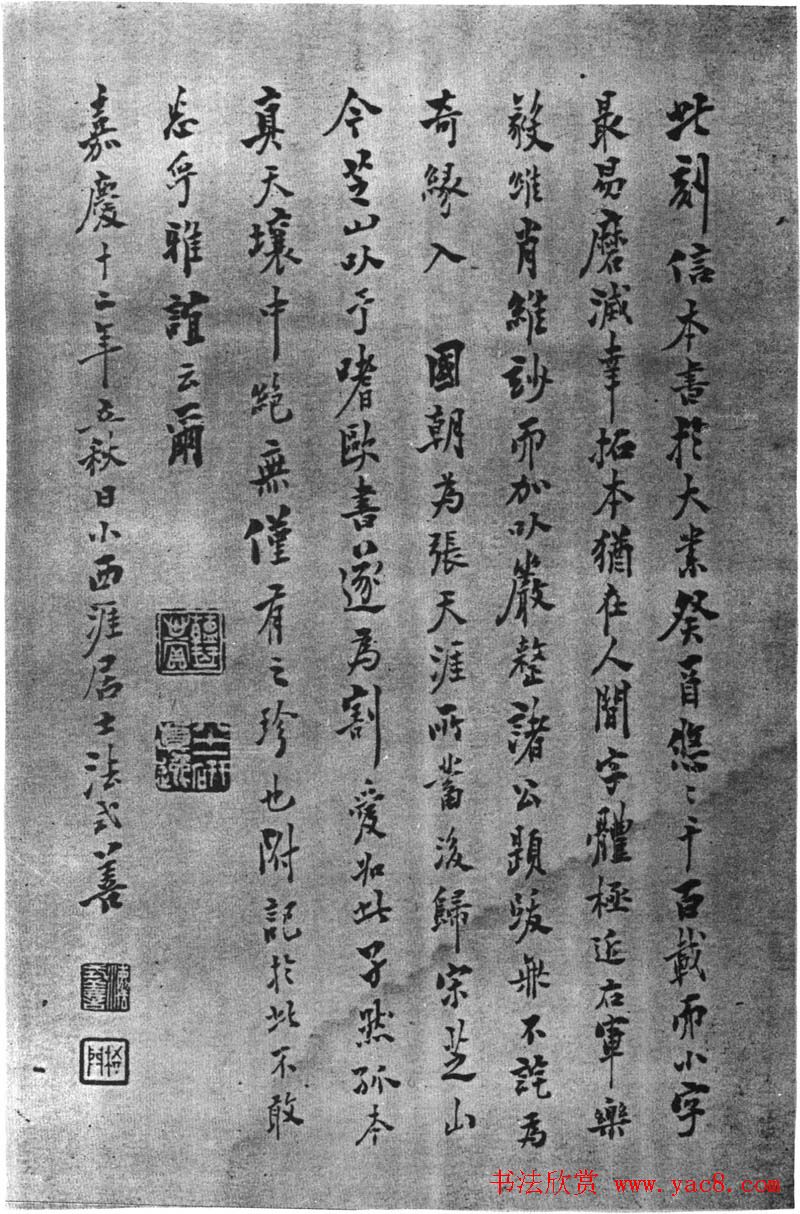 此刻信本書於大業癸酉悠〻千百載而小字
最易磨滅幸拓本猶在人間字體極近右軍樂
毅維肖維妙而加以嚴整諸公題跋無不詫為
奇緣入 國朝為張天涯所蓄後歸宋芝山
今芝山以予嗜歐書遂為割愛如此孑然孤本
真天壤中絕無僅有之珍也附記於此不敢
忘乎雅誼云爾
嘉慶十二年立秋日小西涯居士法式善
书法欣赏 www.yac8.com